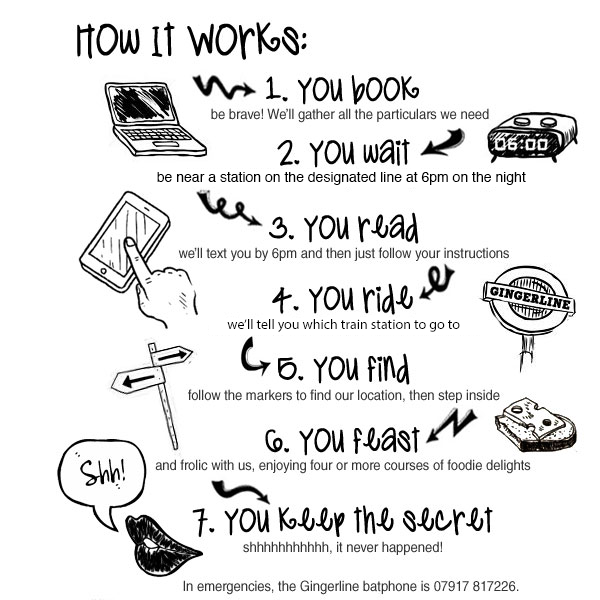 HOW IT WORKS:
1. YOU BOOK
be brave! We'll gather all the particulars we need
2. YOU WAIT
06:00
be near a station on the designated line at 6pm on the night
3. YOU READ
we'll text you by 6pm and then just follow your instructions
4. YOU RIDE
GINGERLINE
we'll tell you which train station to go to
5. YOU FIND
follow the markers to find our location, then step inside
6. YOU FEAST
and frolic with us, enjoying four or more courses of foodie delights
Shh!
7. YOU KEEP THE SECRET
shhhhhhhhhhh, it never happened!
In emergencies, the Gingerline batphone is 07917 817226.